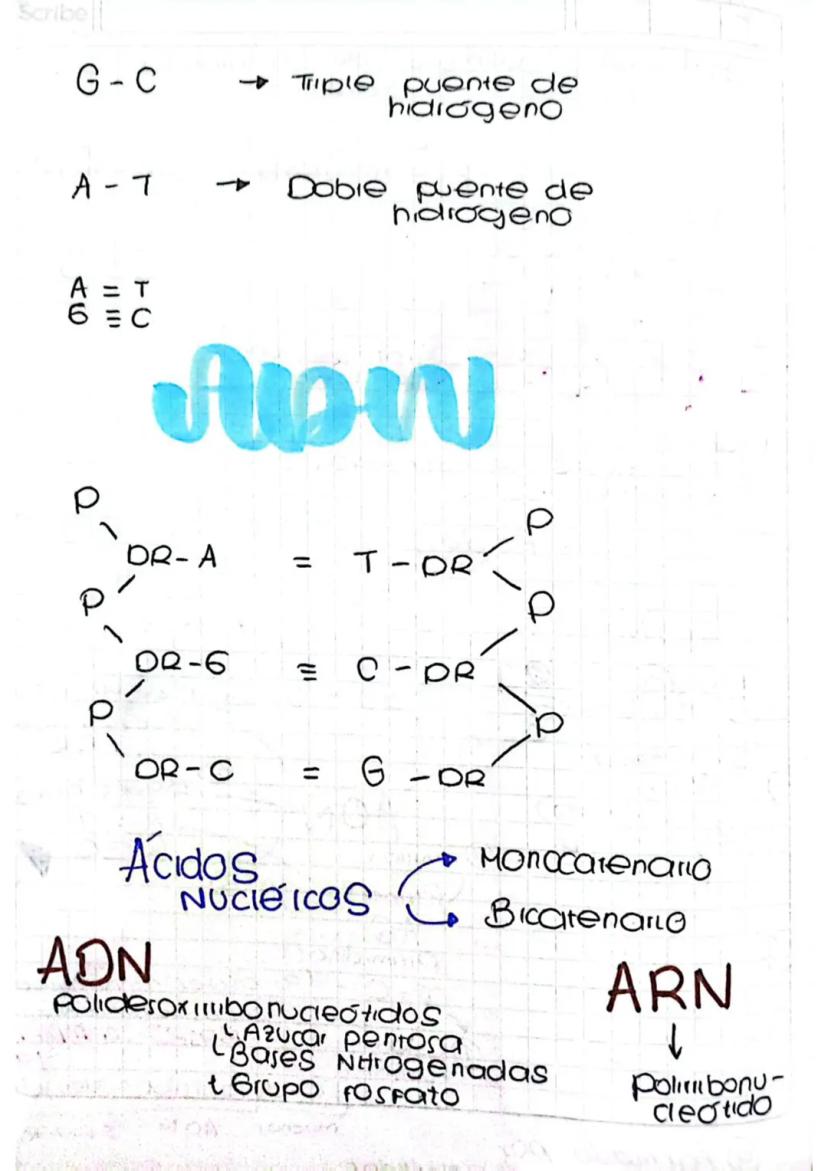 Scribe
G - C → Triple puente de
hidrógeno
A - T → Doble puente de
hidrógeno
A = T
G ≡ C
ADN
P
P
DR - A = T - DR
P
P
DR - G ≡ C - DR
P
P
DR - C = G - DR
Ácidos
Nucléicos
Monocatenario
Bicatenario
ADN
ARN
Polidesoxirribonucleótidos
Azúcar pentosa
Bases Nitrogenadas
Grupo fosfato
↓
polirribonu-
cleótido